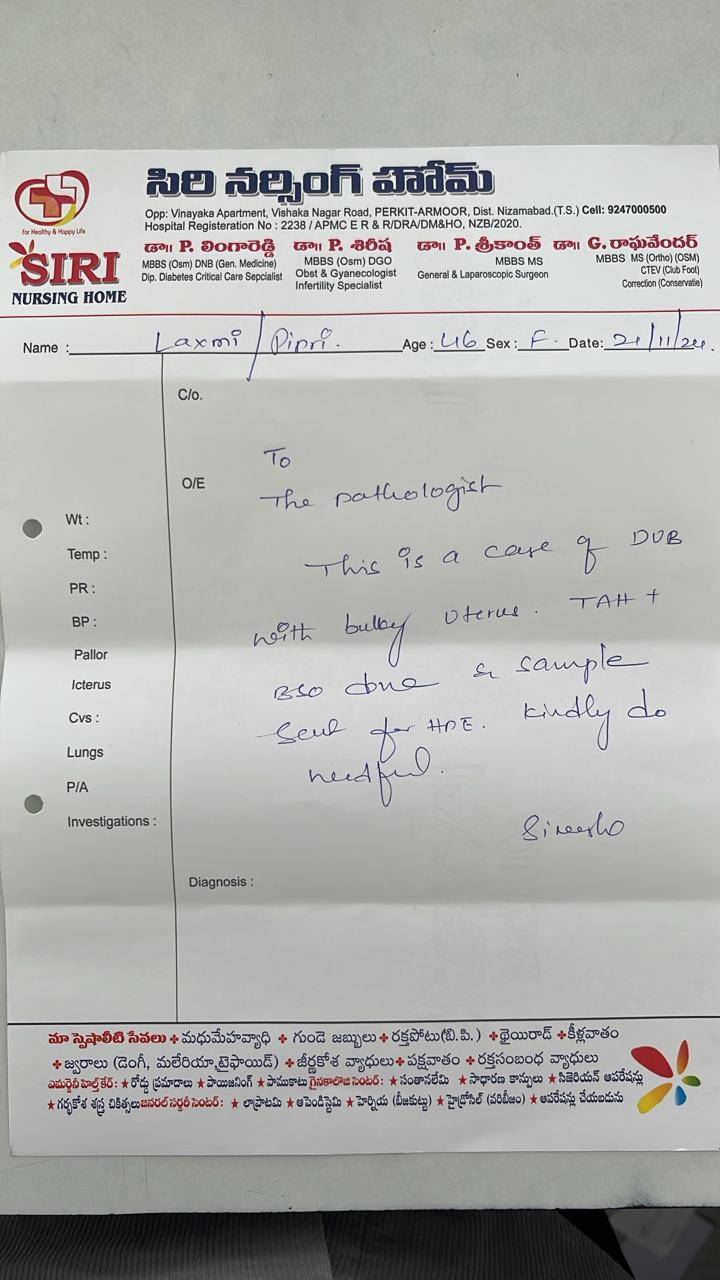 సిరి నర్సింగ్ హోమ్
for Healthy & Happy Life
SIRI
NURSING HOME
Opp: Vinayaka Apartment, Vishaka Nagar Road, PERKIT-ARMOOR, Dist. Nizamabad.(T.S.) Cell: 9247000500
Hospital Registeration No : 2238 / APMC E R & R/DRA/DM&HO, NZB/2020.
డా॥ P. లింగారెడ్డి
MBBS (Osm) DNB (Gen. Medicine)
Dip. Diabetes Critical Care Sepcialist
డా॥ P. శిరీష
MBBS (Osm) DGO
Obst & Gyanecologist
Infertility Specialist
డా॥ P. శ్రీకాంత్
MBBS MS
General & Laparoscopic Surgeon
డా॥ G. రాఘవేందర్
MBBS MS (Ortho) (OSM)
CTEV (Club Foot)
Correction (Conservatie)
Name : Laxmi / Pipri. Age : 46 Sex : F. Date: 21/11/24.
C/o.
O/E
To
The pathologist
This is a case of DUB
with bulky uterus. TAH +
BSO done & sample
sent for HPE. Kindly do
needful.
Wt :
Temp :
PR :
BP :
Pallor
Icterus
Cvs :
Lungs
P/A
Investigations :
Diagnosis :
మా స్పెషాలీటి సేవలు + మధుమేహవ్యాధి + గుండె జబ్బులు + రక్తపోటు(బి.పి.) + థైయిరాడ్ + కీళ్లవాతం
+ జ్వరాలు (డెంగీ, మలేరియా,టైఫాయిడ్) + జీర్ణకోశ వ్యాధులు + పక్షవాతం + రక్తసంబంధ వ్యాధులు
ఎమర్జెనీ హెల్త్ కేర్: ★ రోడ్డు ప్రమాదాలు ★ పాయిజనింగ్ ★ పాముకాటు గైనకాలాజి సెంటర్: ★ సంతానలేమి ★ సాధారణ కాన్పులు ★ సిజెరియన్ ఆపరేషన్లు
★ గర్భకోశ శస్త్ర చికిత్సలు జనరల్ సర్జరీ సెంటర్: ★ లాప్రాటమి ★ ఆపెండిస్టెమి ★ హెర్నియ (బీజకుట్టు) ★ హైడ్రోసిల్ (వరిబీజం) ★ ఆపరేషన్లు చేయబడును